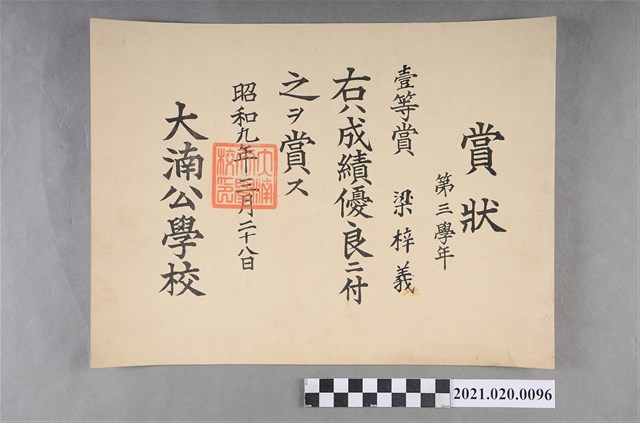 賞狀
第三學年
壹等賞 梁梓義
右ハ成績優良ニ付
之ヲ賞ス
昭和九年三月二十八日
大湳公學校
大湳公學校印
2021.020.0096